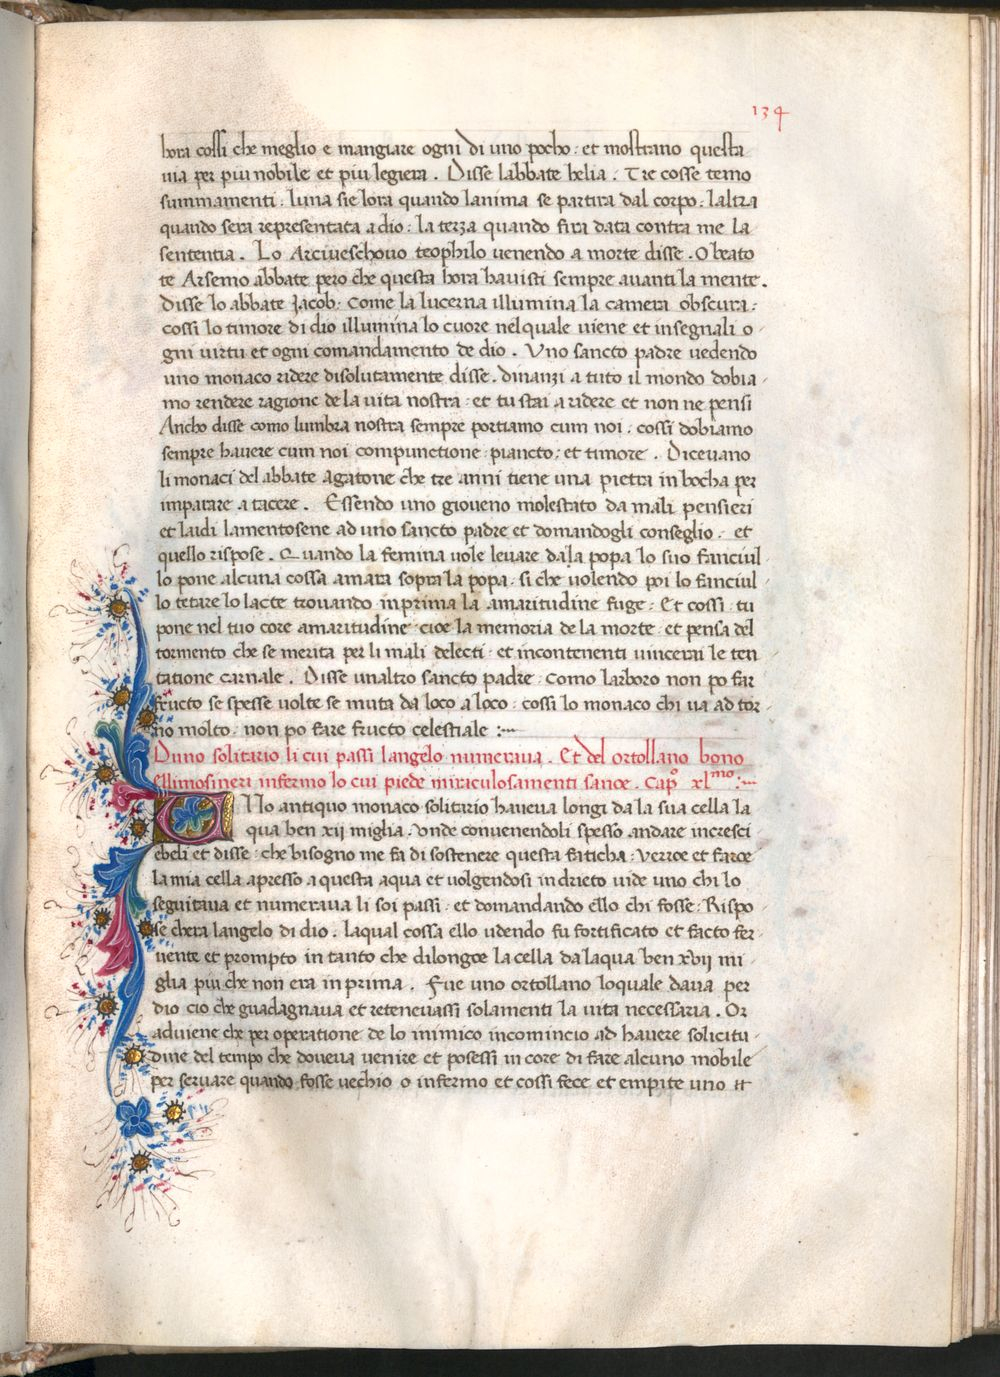 134
hora cossi che meglio e mangiare ogni di uno pocho : et mostrano questa
uia per piu nobile et piu legiera . Disse labbate helia . Tre cosse temo
summamenti : luna sie lora quando lanima se partira dal corpo : laltra
quando sera representata a dio : la terza quando fira data contra me la
sententia . Lo Arciueschouo teophilo uenendo a morte disse . O beato
te Arsemo abbate pero che questa hora hauisti sempre auanti la mente .
Disse lo abbate Jacob : Come la lucerna illumina la camera obscura :
cossi lo timore di dio illumina lo cuore nel quale uiene et insegnali o
gni uirtu et ogni comandamento de dio . Uno sancto padre uedendo
uno monaco ridere disolutamente disse . dinanzi a tuto il mondo dobia
mo rendere ragione de la uita nostra : et tu stai a ridere et non ne pensi
Ancho disse como lumbra nostra sempre portiamo cum noi : cossi dobiamo
sempre hauere cum noi compunctione : piancto : et timore . Diceuano
li monaci del abbate Agatone che tre anni tiene una pietra in bocha per
imparare a tacere . Essendo uno gioueno molestato da mali pensieri
et laidi lamentosene ad uno sancto padre et domandogli conseglio : et
quello rispose . Quando la femina uole leuare dala popa lo suo fanciul
lo pone alcuna cossa amara sopra la popa : si che uolendo poi lo fanciul
lo tetare lo lacte trouando inprima la amaritudine fuge : Et cossi tu
pone nel tuo core amaritudine cioe la memoria de la morte et pensa del
tormento che se merita per li mali delecti : et incontenenti uincerai le ten
tatione carnale . Disse unaltro sancto padre : Como larboro non po far
fructo se spesse uolte se muta da loco a loco : cossi lo monaco chi ua ad tor
no molto . non po fare fructo celestiale :
Duno solitario li cui passi langelo numeraua . Et del ortollano bono
ellimosineri infermo lo cui piede miraculosamenti sanoe . Capo xlmo :
UNo antiquo monaco solitario haueua longi da la sua cella la
qua ben xii miglia . Onde conuenendoli spesso andare incresci
ebeli et disse : che bisogno me fa di sostenere questa faticha : Verroe et faroe
la mia cella apresso a questa aqua et uolgendosi indrieto uide uno chi lo
seguitaua et numeraua li soi passi : et domandando ello chi fosse : Rispo
se chera langelo di dio . laqual cossa ello udendo fu fortificato et facto fer
uente et prompto in tanto che dilongoe la cella da laqua ben xvij mi
glia piu che non era inprima . Fue uno ortollano loquale daua per
dio cio che guadagnaua et reteneuassi solamenti la uita necessaria . Or
aduiene che per operatione de lo inimico incomincio ad hauere solicitu
dine del tempo che doueua uenire et posessi in core di fare alcuno mobile
per seruare quando fosse uechio o infermo et cossi fece et empite uno